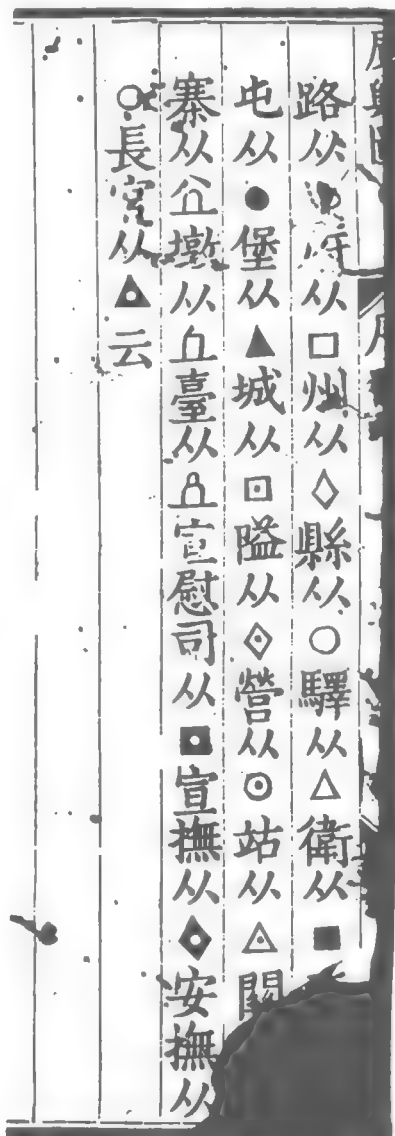 路从府从□州从◇縣从○驛从△衛从■
屯从●堡从▲城从⊡隘从⟐營从⊙站从◬關
寨从墩从臺从宣慰司从▣宣撫从◈安撫从
◉長官从▲云